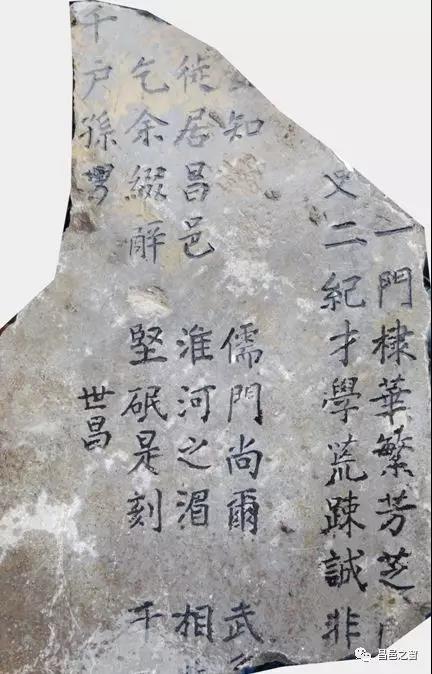 一門棣華繁芳芝
二紀才學荒踈誠非
知 儒門尚爾 武
徙居昌邑 淮河之湄 相
乞余綴辭 堅砥是刻 千
千户孫
世昌
昌邑之窗